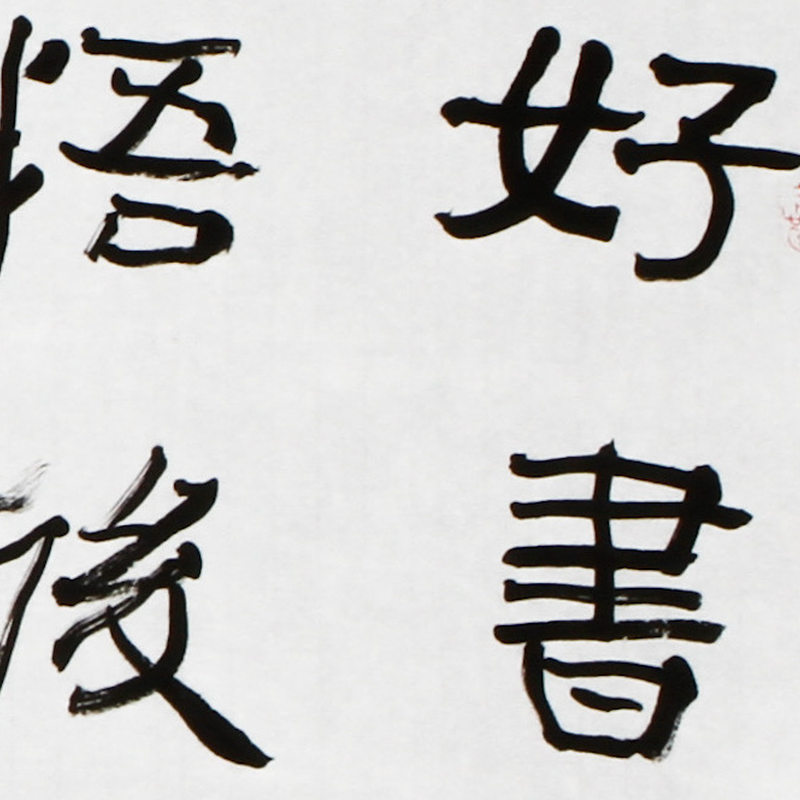 好書
悟後